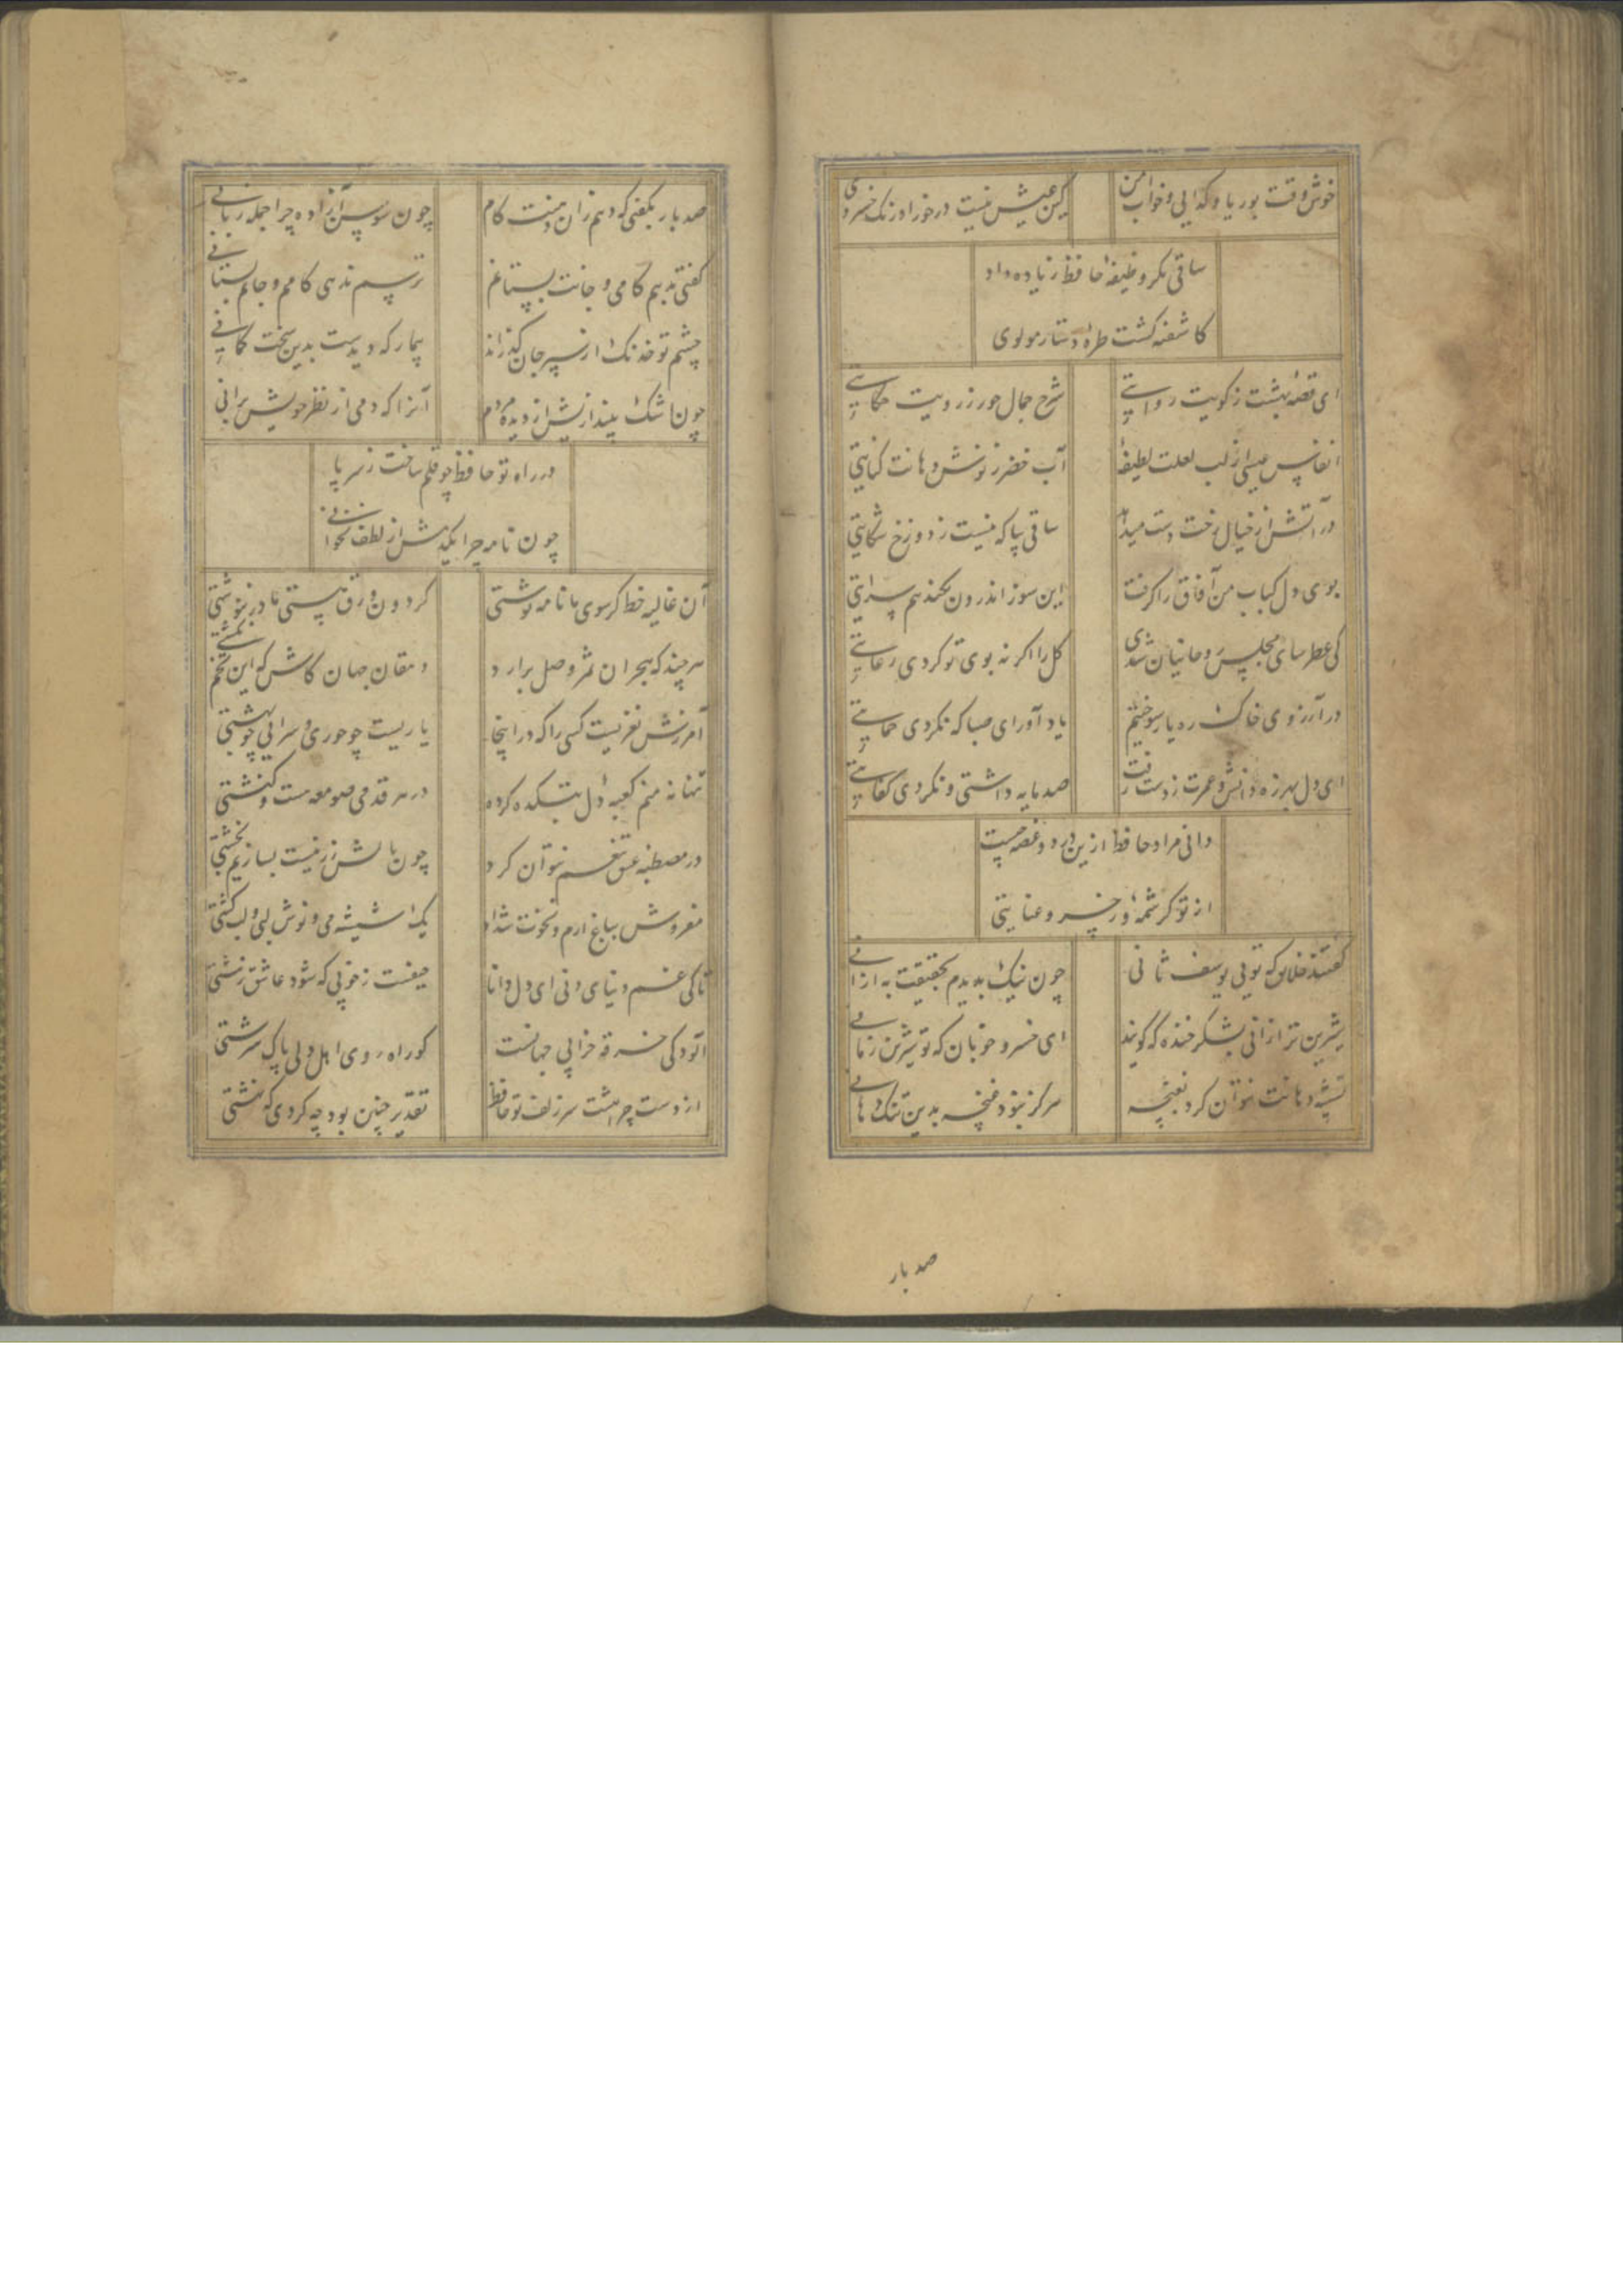 خوش وقت بوریا و کدایی و خواب امن
کین عیش نیست در خور اورنک خسروی
ساقی مکر وظیفهٔ حافظ زیاده داد
کاشفته کشت طرهٔ دستار مولوی
ای قصهٔ بهشت ز کویت روایتی
شرح جمال حور ز رویت حکایتی
انفاس عیسی از لب لعلت لطیفهٔ
آب خضر ز نوش دهانت کنایتی
در آتش از خیال رخت دست میدهد
ساقی بیا که نیست ز دوزخ شکایتی
بوی دل کباب من آفاق را کرفت
این سوز اندرون بکند هم سرایتی
کی عطرسای مجلس روحانیان شدی
کل را اکر نه بوی تو کردی رعایتی
در آرزوی خاک ره یار سوختیم
یاد آور ای صبا که نکردی حمایتی
ای دل بهرزه دانش و عمرت ز دست رفت
صد مایه داشتی و نکردی کفایتی
دانی مراد حافظ ازین درد و غصه چیست
از تو کرشمهٔ و ز خسرو عنایتی
کفتند خلایق که تویی یوسف ثانی
چون نیک بدیدم بحقیقت به از آنی
شیرین تر از آنی بشکر خنده که کویند
ای خسرو خوبان که تو شیرین زمانی
تشبیه دهانت نتوان کرد بغنچه
هرکز نبود غنچه بدین تنک دهانی
صد بار
صد بار بکفتی که دهم زان دهنت کام
چون سوسن آزاده چرا جمله زبانی
کفتی بدهم کامی و جانت بستانم
ترسم ندهی کامم و جانم بستانی
چشم تو خدنک از سپر جان کذراند
بیمار که دیدست بدین سخت کمانی
چون اشک بیندازیش از دیدهٔ مردم
آنرا که دمی از نظر خویش برانی
در راه تو حافظ چو قلم ساخت ز سر پا
چون نامه چرا یکدمش از لطف نخوانی
آن غالیه خط کر سوی ما نامه نوشتی
کردون ورق هستی ما در ننوشتی
هر چند که هجران ثمر وصل برآرد
دهقان جهان کاش که این تخم نکشتی
آمرزش نقدیست کسی را که در اینجا
یاریست چو حوری و سرایی چو بهشتی
تنها نه منم کعبهٔ دل بتکده کرده
در هر قدمی صومعه هست و کنشتی
در مصطبهٔ عشق تنعم نتوان کرد
چون بالش زر نیست بسازیم بخشتی
مفروش بباغ ارم و نخوت شداد
یک شیشه می و نوش لبی و لب کشتی
تا کی غم دنیای دنی ای دل دانا
حیفست ز خوبی که شود عاشق زشتی
آلودکی خرقه خرابی جهانست
کو راه روی اهل دلی پاک سرشتی
از دست چرا هشت سر زلف تو حافظ
تقدیر چنین بود چه کردی که نهشتی